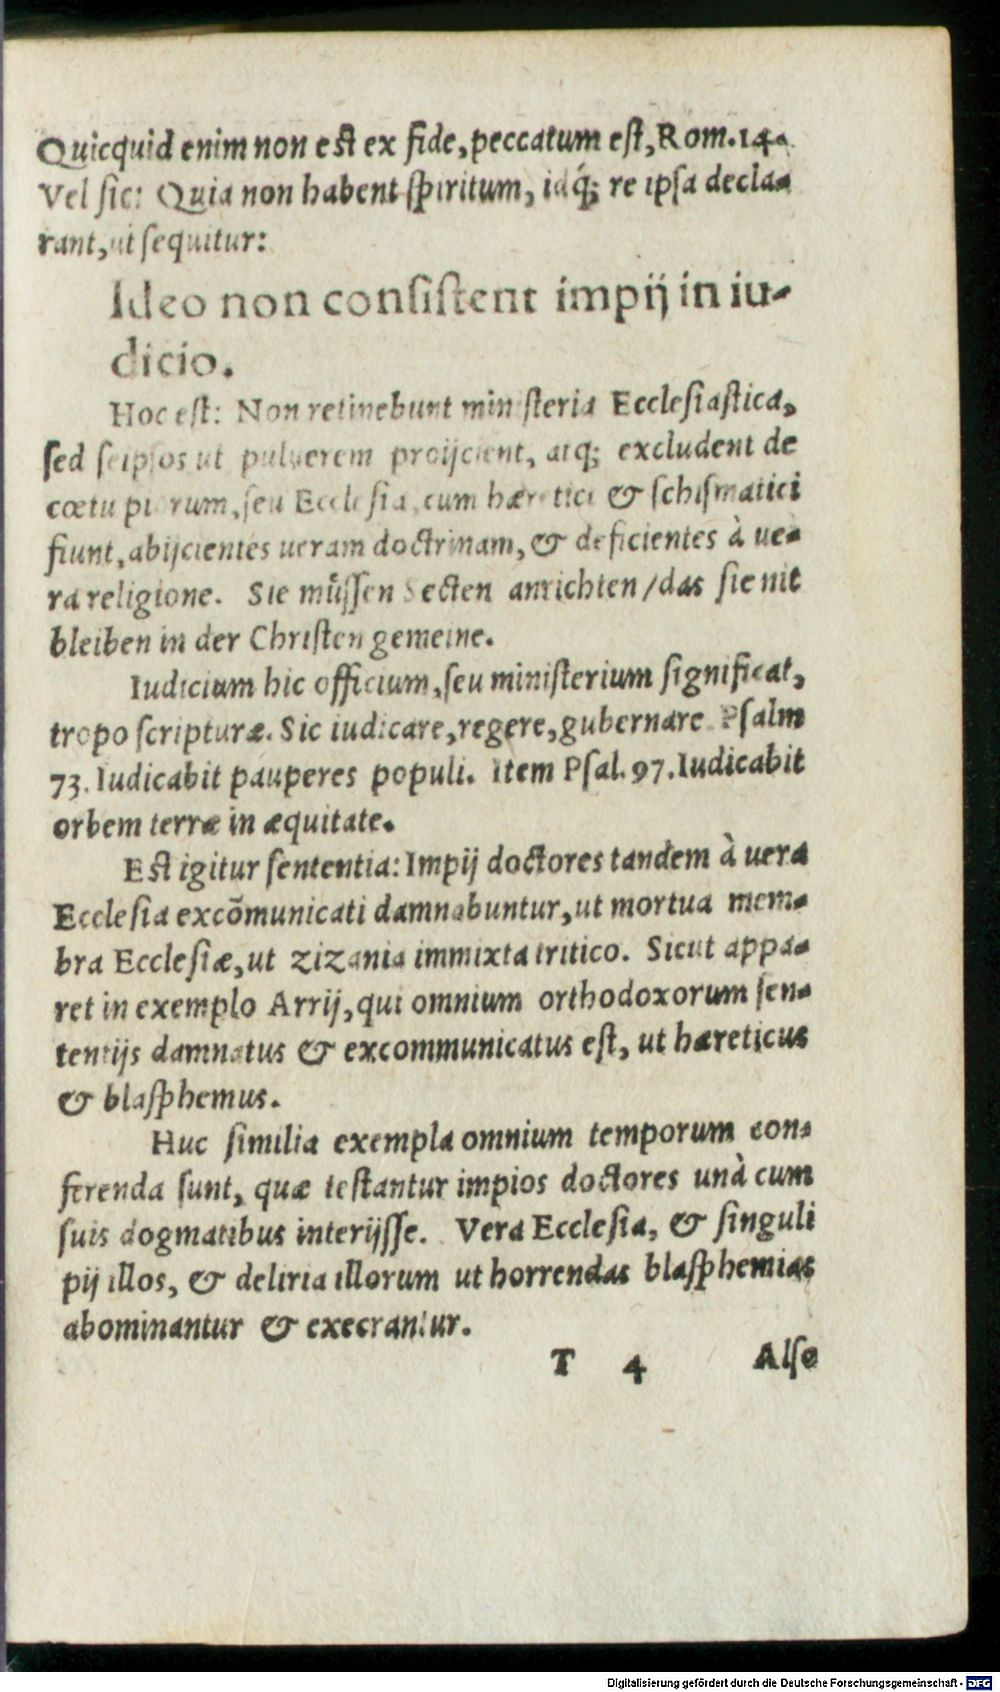 Quicquid enim non est ex fide, peccatum est, Rom. 14.
Vel sic: Quia non habent spiritum, idq́; re ipsa decla-
rant, ut sequitur:
Ideo non consistent impij in iu-
dicio.
Hoc est: Non retinebunt ministeria Ecclesiastica,
sed seipsos ut pulverem proijcient, atq; excludent de
cœtu piorum, seu Ecclesia, cum hæretici & schismatici
fiunt, abijcientes ueram doctrinam, & deficientes à ue-
ra religione. Sie müssen Secten anrichten / das sie nit
bleiben in der Christen gemeine.
Iudicium hic officium, seu ministerium significat,
tropo scripturæ. Sic iudicare, regere, gubernare Psalm
73. Iudicabit pauperes populi. Item Psal. 97. Iudicabit
orbem terræ in æquitate.
Est igitur sententia: Impij doctores tandem à uera
Ecclesia excõmunicati damnabuntur, ut mortua mem-
bra Ecclesiæ, ut zizania immixta tritico. Sicut appa-
ret in exemplo Arrij, qui omnium orthodoxorum sen-
tentijs damnatus & excommunicatus est, ut hæreticus
& blasphemus.
Huc similia exempla omnium temporum con-
ferenda sunt, quæ testantur impios doctores unà cum
suis dogmatibus interijsse. Vera Ecclesia, & singuli
pij illos, & deliria illorum ut horrendas blasphemias
abominantur & execrantur.
T 4 Also
Digitalisierung gefördert durch die Deutsche Forschungsgemeinschaft - DFG